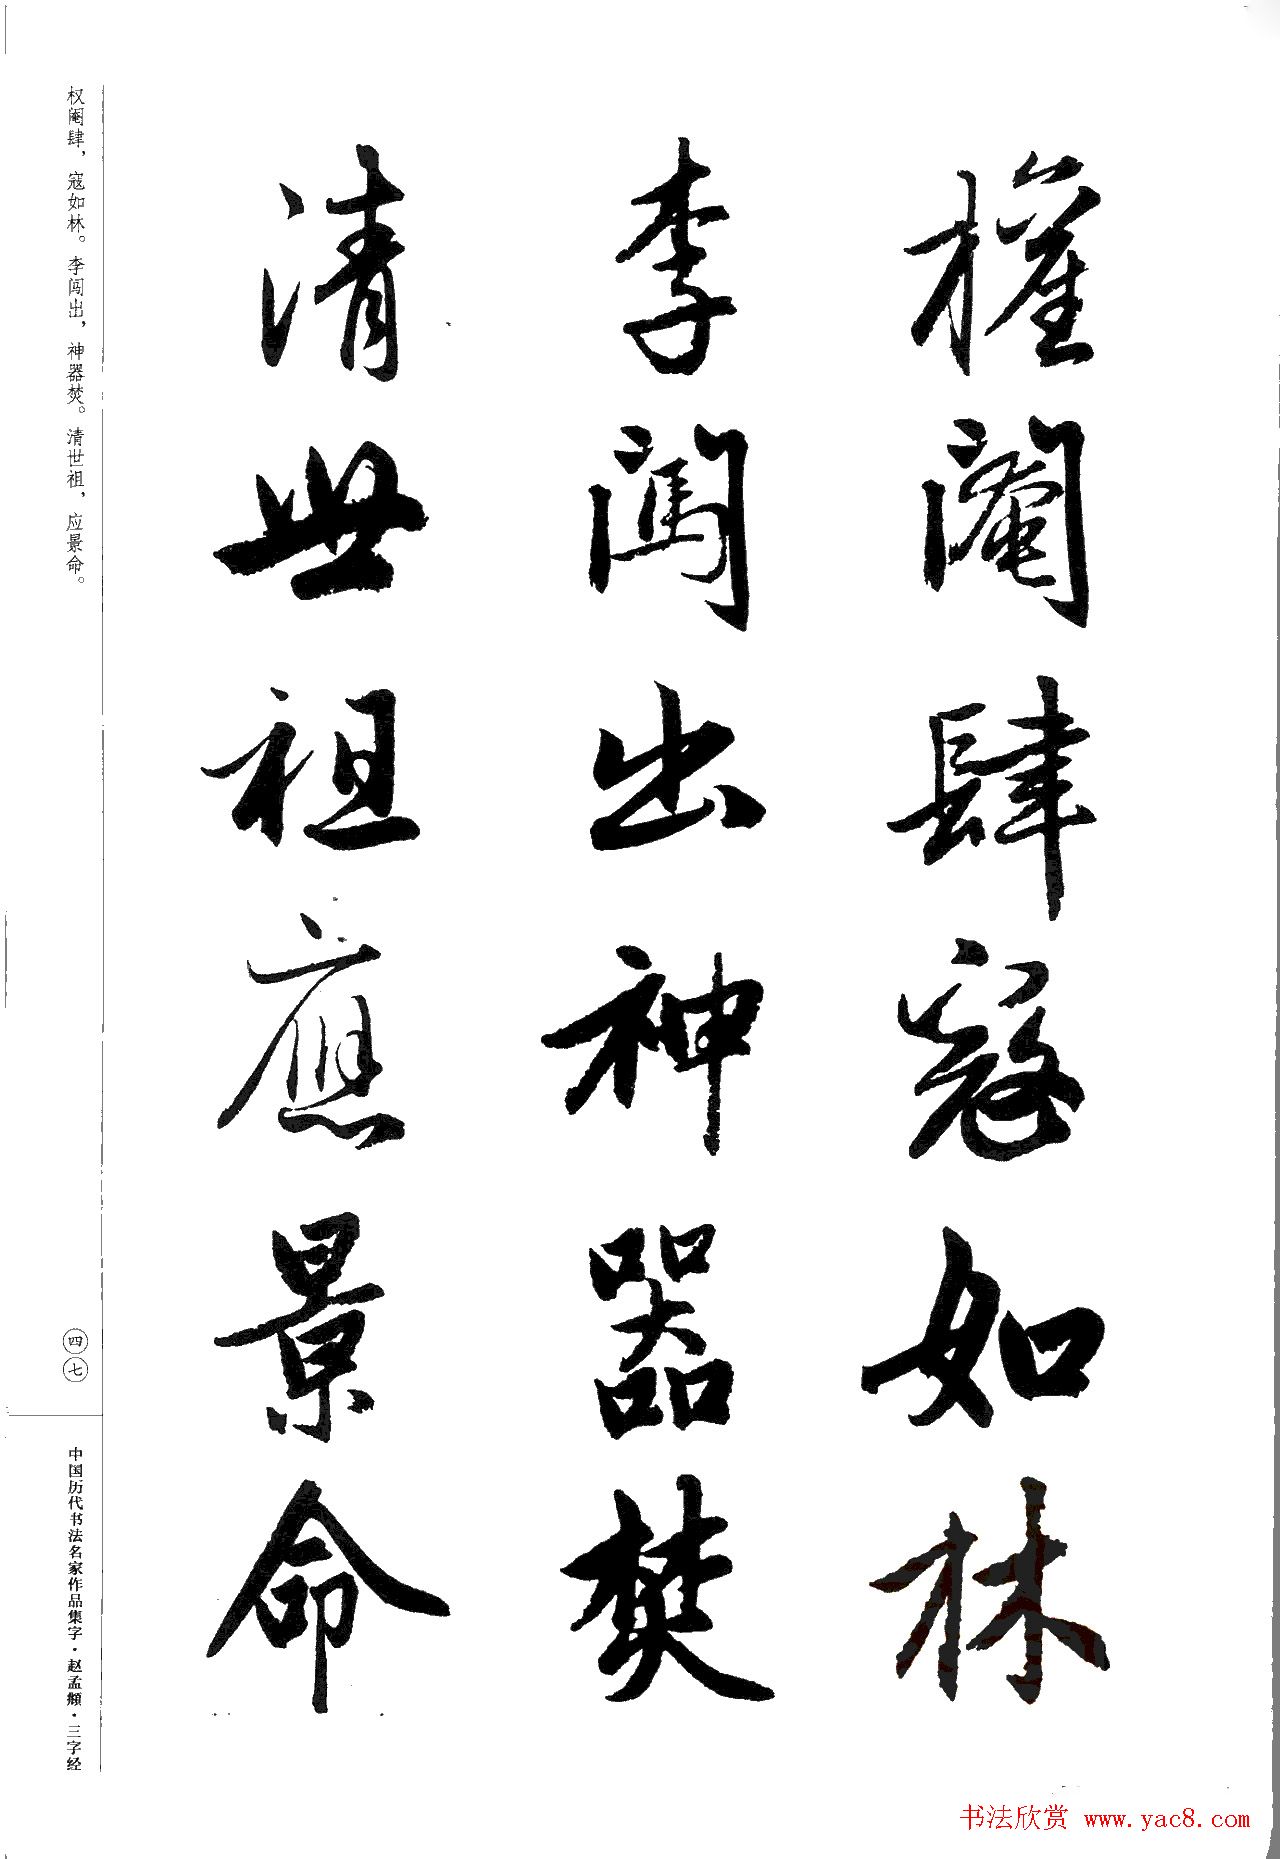 權閹肆寇如林
李闖出神器焚
清世祖應景命
权阉肆，寇如林。李闯出，神器焚。清世祖，应景命。
四七
中国历代书法名家作品集字·赵孟頫·三字经
书法欣赏 www.yac8.com